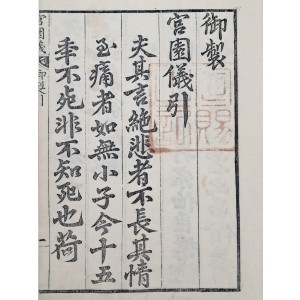 御製
宮園儀引
夫其言絶悲者不長其情
至痛者如無小子今十五
秊不死非不知死也荷
宮園儀 御製引
一